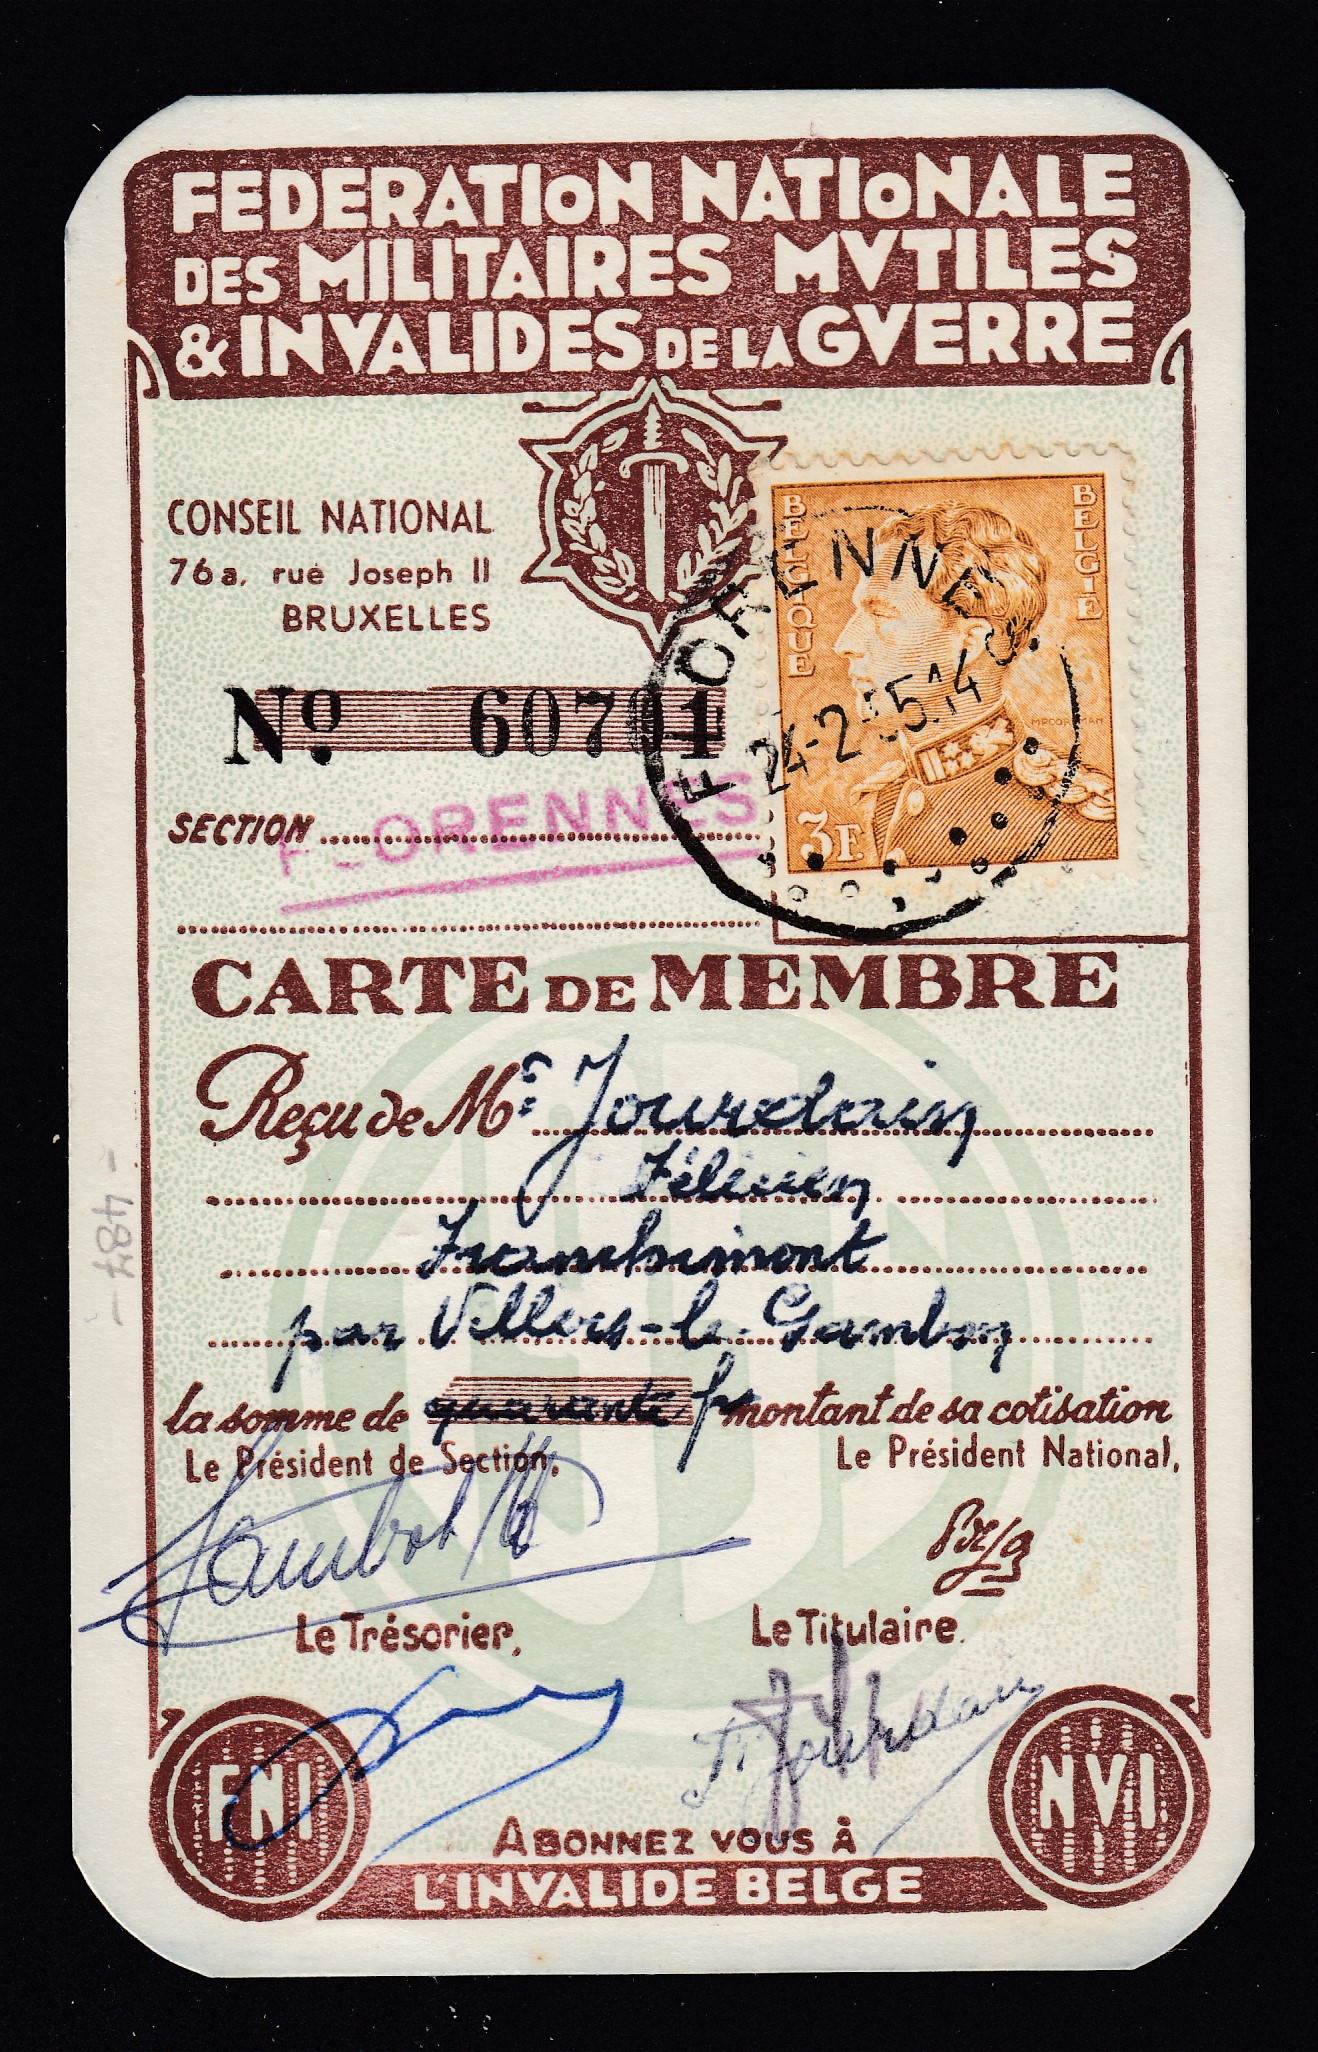 FEDERATION NATIONALE
DES MILITAIRES MVTILES
& INVALIDES DE LA GVERRE
CONSEIL NATIONAL
76a, rue Joseph II
BRUXELLES
BELGIQUE
BELGIE
3F.
FLORENNES
24-2
5.14
Nº 60701
SECTION FLORENNES
CARTE DE MEMBRE
Reçu de Mr Jourdain
Félicien
Franchimont
par Villers-le-Gamb
la somme de quarante frs montant de sa cotisation
Le Président de Section,
Le Président National,
Le Trésorier,
Le Titulaire.
FNI
NVI
ABONNEZ VOUS À
L'INVALIDE BELGE
- 487 -